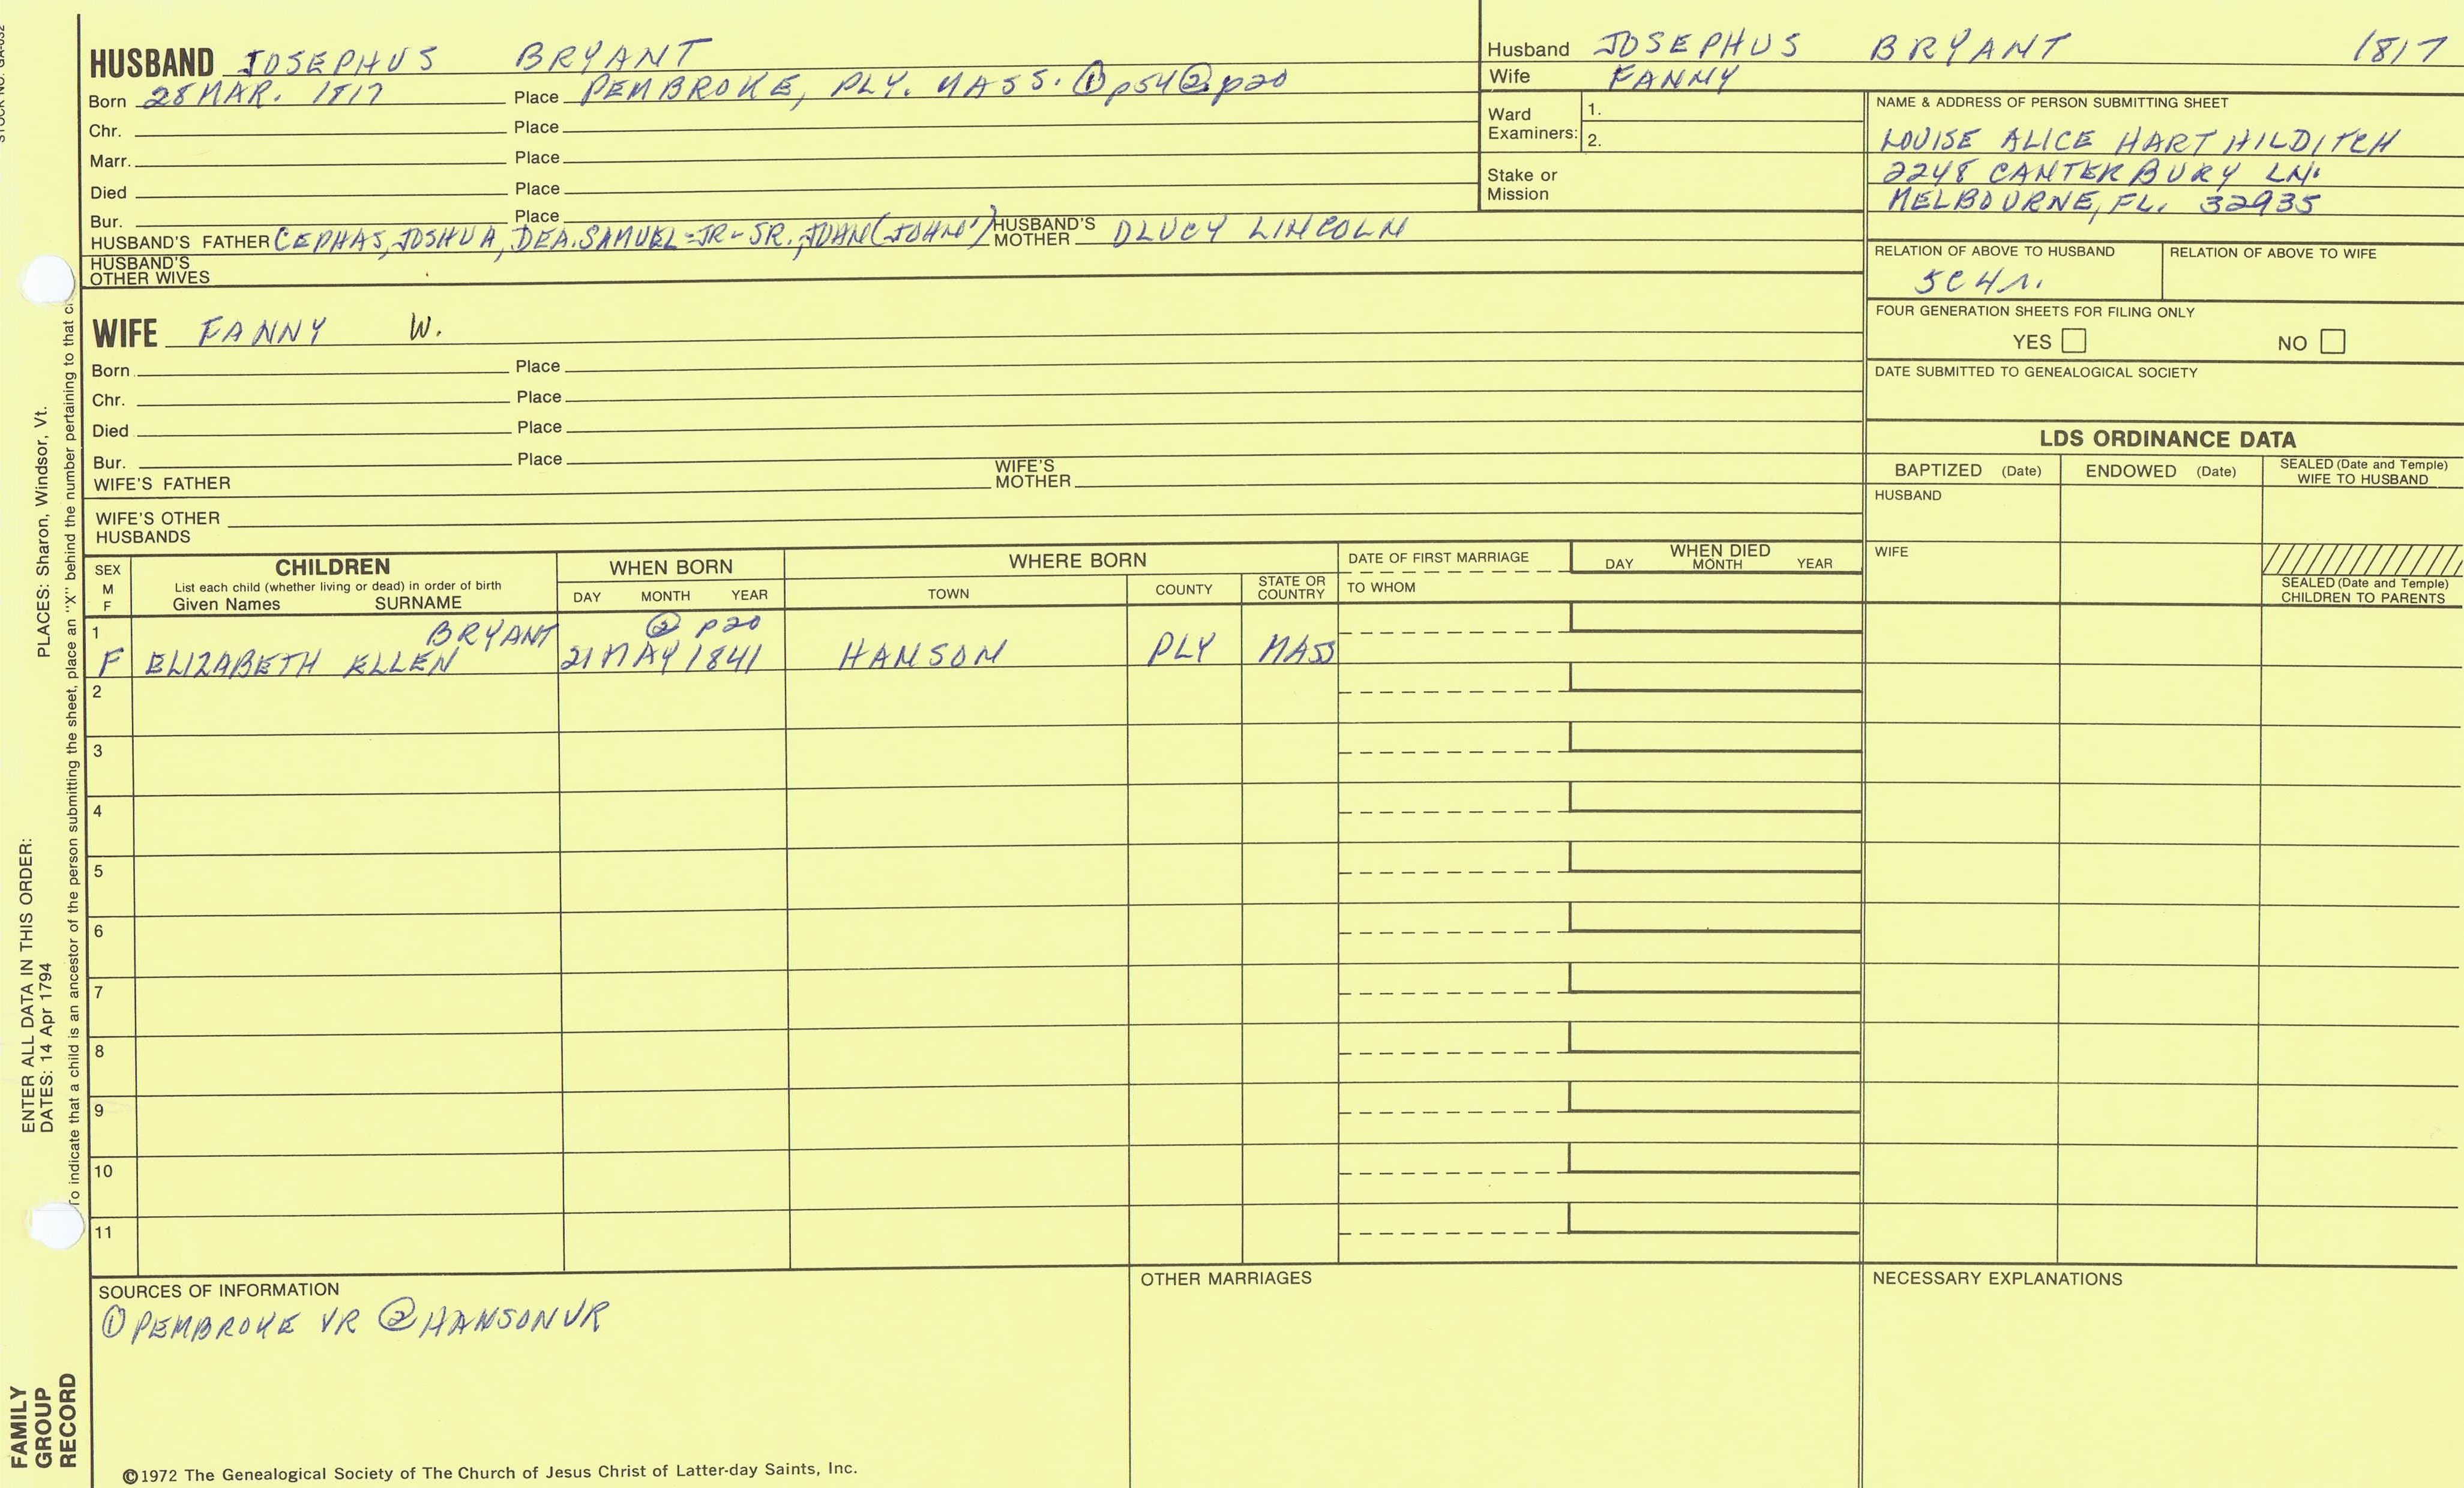 STOCK NO. GA-032
HUSBAND JOSEPHUS BRYANT
Born 28 MAR. 1817 Place PEMBROKE, PLY. MASS. ① p54 ② p20
Chr. Place
Marr. Place
Died Place
Bur. Place
HUSBAND'S FATHER CEPHAS, JOSHUA, DEA. SAMUEL-JR-SR., JOHN (JOHN') HUSBAND'S MOTHER DLUCY LINCOLN
HUSBAND'S
OTHER WIVES
Husband JOSEPHUS BRYANT 1817
Wife FANNY
Ward
Examiners:
1.
2.
Stake or
Mission
NAME & ADDRESS OF PERSON SUBMITTING SHEET
LOUISE ALICE HART HILDITCH
2248 CANTERBURY LN.
MELBOURNE, FL. 32935
RELATION OF ABOVE TO HUSBAND
5C4r.
RELATION OF ABOVE TO WIFE
FOUR GENERATION SHEETS FOR FILING ONLY
YES NO
DATE SUBMITTED TO GENEALOGICAL SOCIETY
WIFE FANNY W.
Born Place
Chr. Place
Died Place
Bur. Place
WIFE'S FATHER WIFE'S MOTHER
WIFE'S OTHER
HUSBANDS
LDS ORDINANCE DATA
BAPTIZED (Date) ENDOWED (Date) SEALED (Date and Temple)
WIFE TO HUSBAND
HUSBAND
WIFE
SEALED (Date and Temple)
CHILDREN TO PARENTS
SEX
M
F
CHILDREN
List each child (whether living or dead) in order of birth
Given Names SURNAME
WHEN BORN
DAY MONTH YEAR
WHERE BORN
TOWN COUNTY STATE OR
COUNTRY
DATE OF FIRST MARRIAGE
TO WHOM
WHEN DIED
DAY MONTH YEAR
1 BRYANT ② p20
F ELIZABETH ELLEN 21 MAY 1841 HANSON PLY MASS
2
3
4
5
6
7
8
9
10
11
SOURCES OF INFORMATION
① PEMBROKE VR ② HANSON VR
OTHER MARRIAGES
NECESSARY EXPLANATIONS
©1972 The Genealogical Society of The Church of Jesus Christ of Latter-day Saints, Inc.
FAMILY
GROUP
RECORD
ENTER ALL DATA IN THIS ORDER:
DATES: 14 Apr 1794 PLACES: Sharon, Windsor, Vt.
To indicate that a child is an ancestor of the person submitting the sheet, place an "X" behind the number pertaining to that